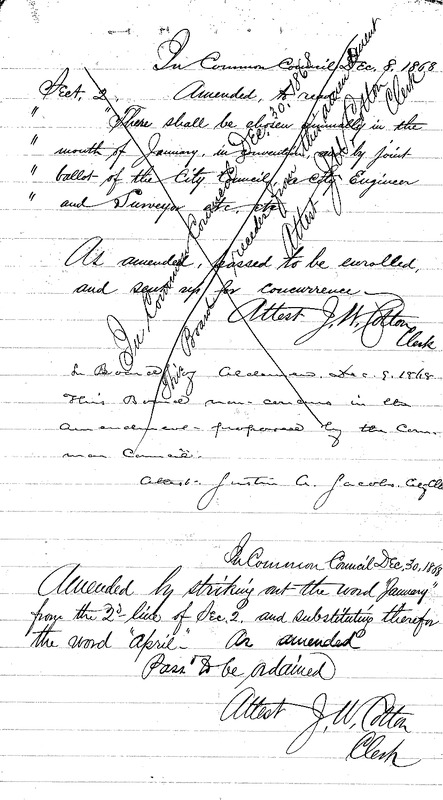 In Common Council Dec. 8, 1868
Sect. 2. Amended, to read
" There shall be chosen annually in the
" month of January, in convention, and by joint
" ballot of the City Council, a City Engineer
" and Surveyor etc., etc.
As amended, passed to be enrolled,
and sent up for concurrence.
Attest J. W. Cotton
Clerk
In Common Council Dec. 30, 1868
This Board recedes from this amendment
Attest J. W. Cotton
Clerk
In Board of Aldermen. Dec. 9. 1868
This Board non-concurs in the
amendment proposed by the Com-
mon Council.
Attest. Justin A. Jacobs. City Clk
In Common Council Dec, 30, 1868
Amended by striking out the word "January"
from the 2d line of Sec. 2. and substituting therefor
the word "April." As amended
Pass.d to be, ordained
Attest J. W. Cotton
Clerk